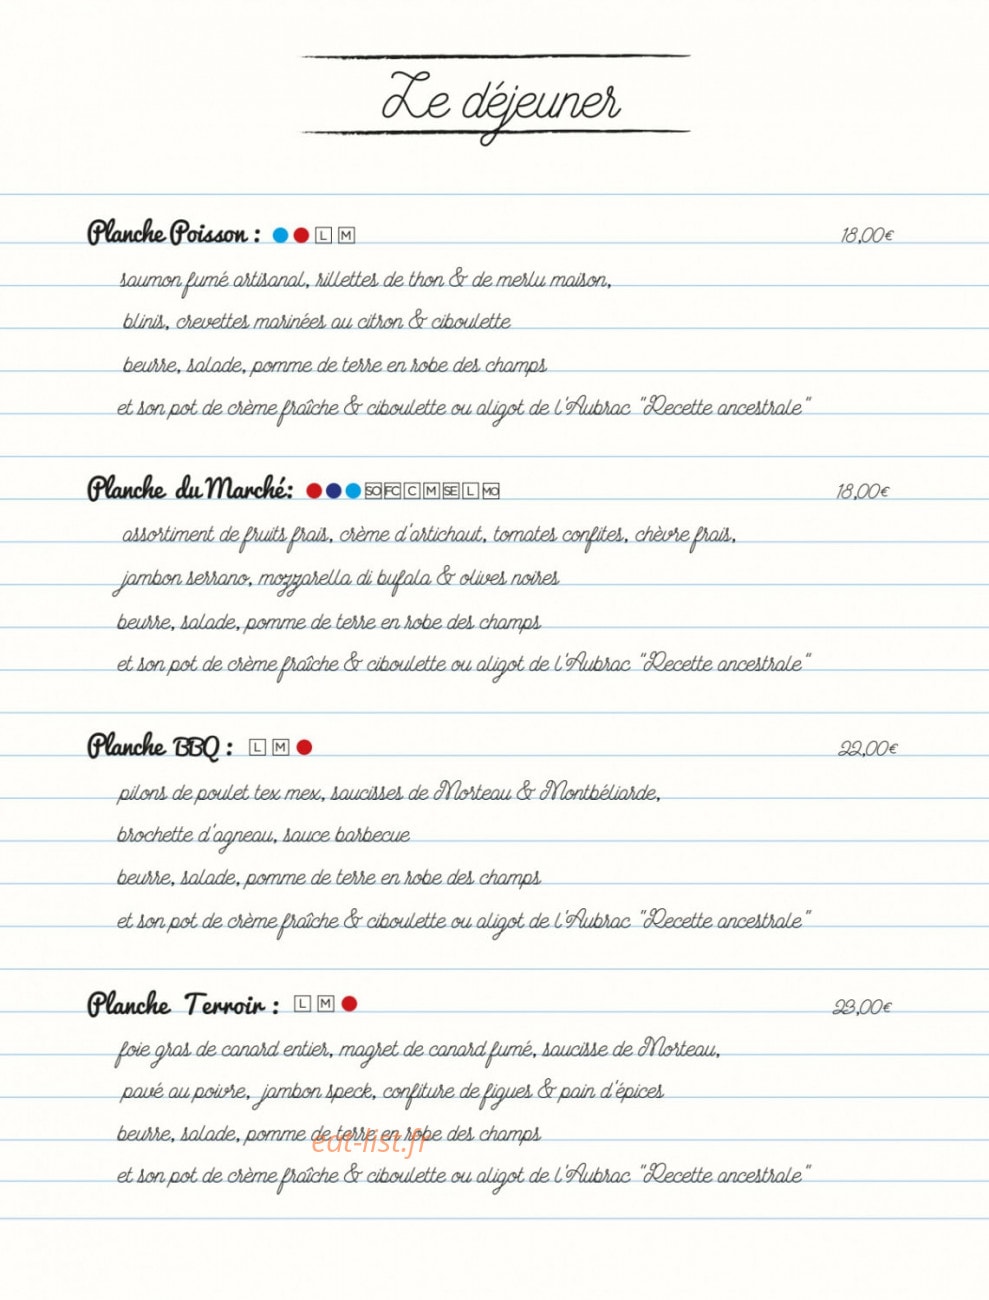 Le déjeuner
Planche Poisson : L M 18,00€
saumon fumé artisanal, rillettes de thon & de merlu maison,
blinis, crevettes marinées au citron & ciboulette
beurre, salade, pomme de terre en robe des champs
et son pot de crème fraîche & ciboulette ou aligot de l'Aubrac "Recette ancestrale"
Planche du Marché: SO FC C M SE L MO 18,00€
assortiment de fruits frais, crème d'artichaut, tomates confites, chèvre frais,
jambon serrano, mozzarella di bufala & olives noires
beurre, salade, pomme de terre en robe des champs
et son pot de crème fraîche & ciboulette ou aligot de l'Aubrac "Recette ancestrale"
Planche BBQ : L M 22,00€
pilons de poulet tex mex, saucisses de Morteau & Montbéliarde,
brochette d'agneau, sauce barbecue
beurre, salade, pomme de terre en robe des champs
et son pot de crème fraîche & ciboulette ou aligot de l'Aubrac "Recette ancestrale"
Planche Terroir : L M 23,00€
foie gras de canard entier, magret de canard fumé, saucisse de Morteau,
pavé au poivre, jambon speck, confiture de figues & pain d'épices
beurre, salade, pomme de terre en robe des champs
eat-list.fr
et son pot de crème fraîche & ciboulette ou aligot de l'Aubrac "Recette ancestrale"